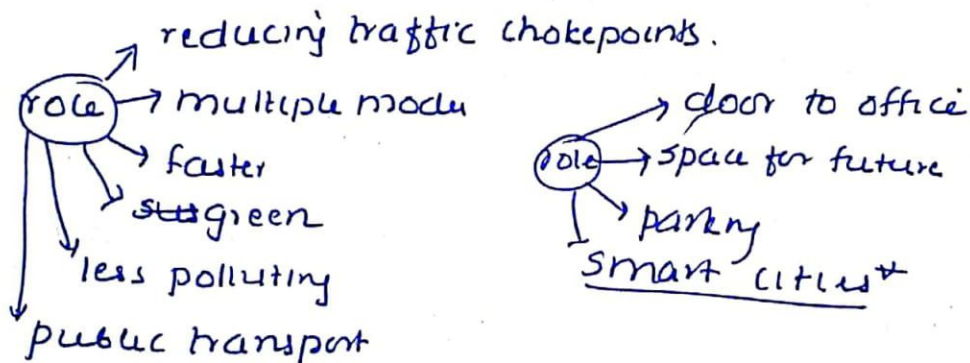 reducing traffic chokepoints.
role
multiple modes
faster
green
less polluting
public transport
role
door to office
space for future
parking
smart cities*